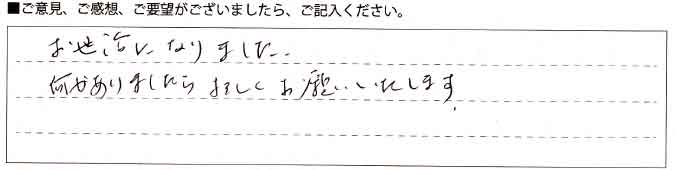 ■ご意見、ご感想、ご要望がございましたら、ご記入ください。
お世話になりました.
何かありましたら よろしくお願いいたします.